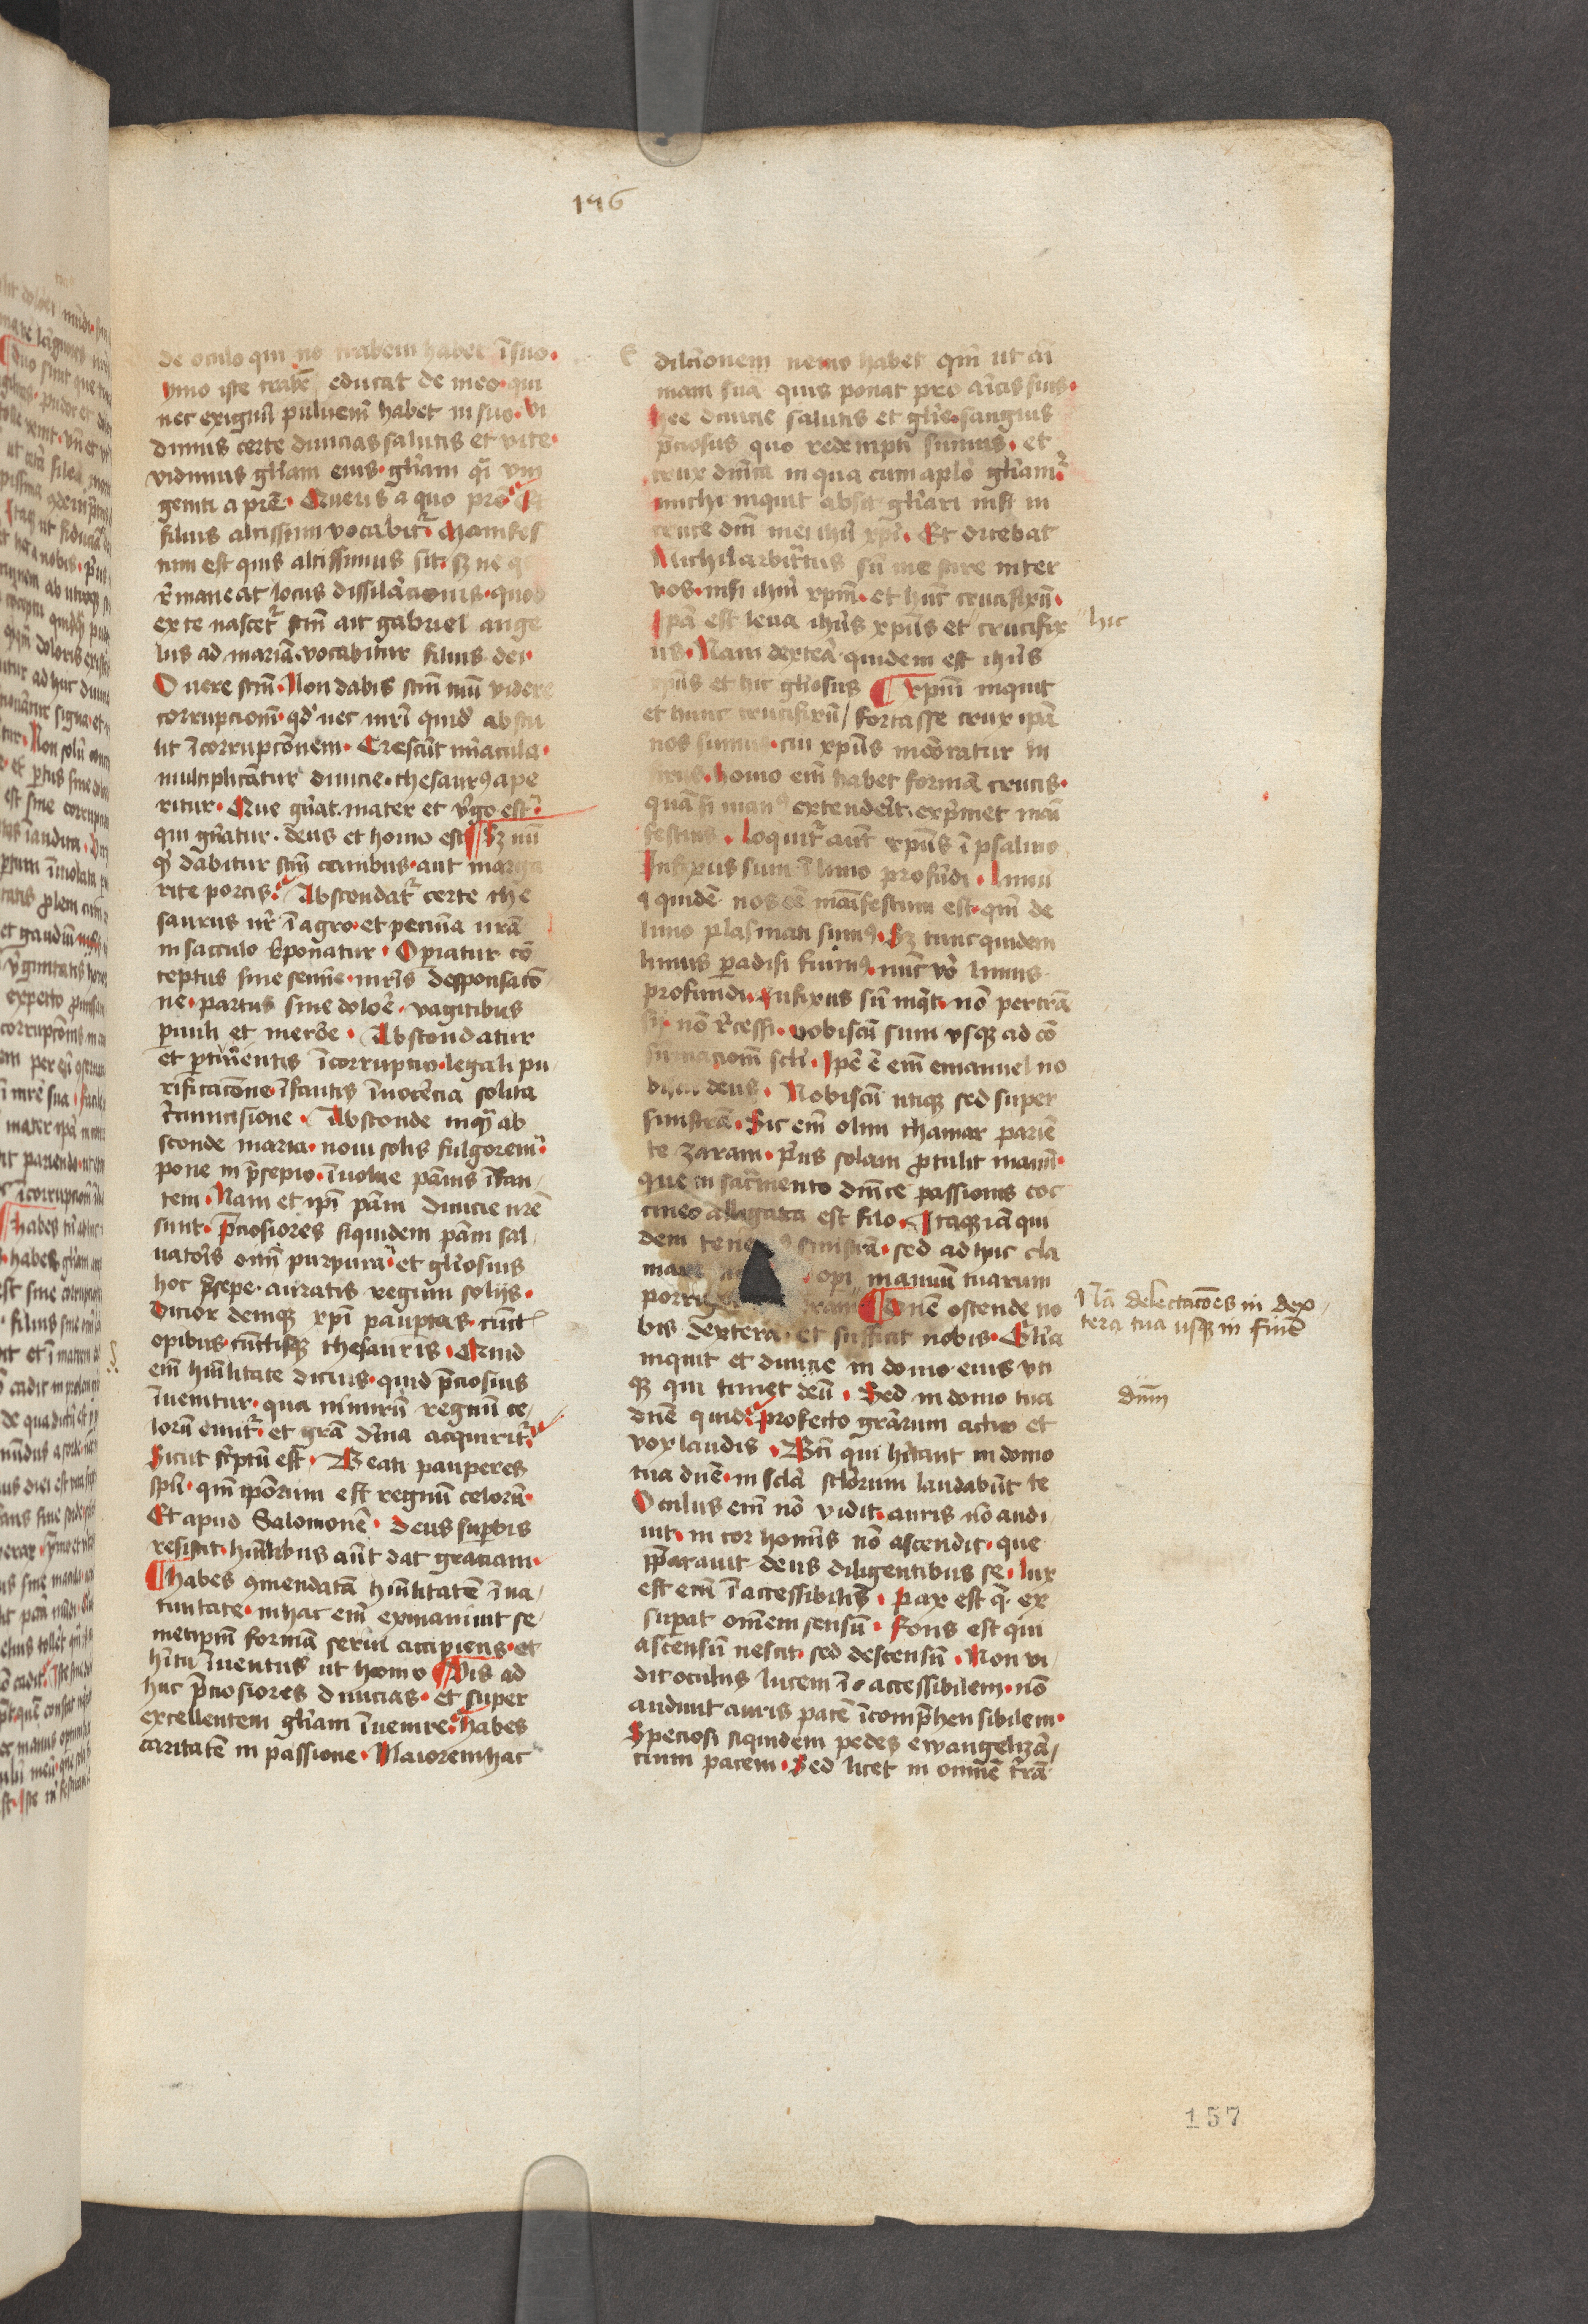 196
de oculo qui nō trabem habet ī suo.
ymo iste trabē educat de meo. qui
nec exiguū puluerē habet in suo. Vi
dimus certe diuicias salutis et vite.
vidimus gl̄iam eius. gl̄iam q̄i vni
geniti a pr̄e. Queris a quo pr̄e Et
filius altissimi vocabit̄. Manifes
tum est quis altissimus sit. sz ne q
r̄maneat locus dissil̄acionis. quod
ex te nascet̄ sc̄m ait gabriel ange
lus ad mariā. vocabitur filius dei.
O vere sc̄m. Non dabis sc̄m tuū videre
corrupcionē. qd̄ nec mr̄i quid abstu
lit īcorrupcōnem. Crescūt mīacula.
multiplicātur diuicie. thesaurꝰ ape
ritur. Que gn̄at. mater et v̄go est.
qui gn̄atur. deus et homo est ¶ Sz nū
qd̄ dabitur sc̄m canibus. aut marga
rite porcis. Abscondat̄ certe the
saurus nr̄ ī agro. et pecūia nr̄a
in sacculo r̄ponatur. Operiatur cō
ceptus sine semīe. mr̄is desponsacō
ne. partus sine dolor̄e. vagitibus
paruuli et merōe. Abscondatur
et pturientis īcorrupcio. legali pu
rificacōne. īfantis īnocēcia solita
circumcisione. Absconde inqȝ ab
sconde maria. noui solis fulgorem
pone in p̄sepio. īuolue pānis īfan
tem. Nam et ipī pāni diuicie nr̄e
sunt. p̄ciosiores siquidem pāni sal
uatoris omī purpura. et gl̄iosius
hoc p̄sepe. auratis regum solijs.
Dicior deniqȝ xp̄i paup̄tas. cūct
opibus. cūctisqȝ thesauris. Quid
em̄ hūilitate dicius. quid p̄ciosius
īuenitur. qua nimirū regnū ce
lorū emit̄. et gr̄a dīina acquirit̄.
Sicut sc̄ptū est. Beati pauperes
sp̄u. qm̄ ipōrum est regnū celorū.
Et apud Salomonē. Deus sup̄bis
resistit. hūilibus aūt dat graciam.
¶ habes ꝯmendatā hūilitatē ī na
tiuitate. in hac em̄ exinaniuit se
metipm̄ formā serui accipiens. et
hītu īuentus ut homo ¶ Vis ad
huc p̄ciosiores diuicias. et super
excellentem gl̄iam īuenire. habes
caritatē in passione. Maiorem hac
dilcionem nemo habet qm̄ ut ani
mam suā quis ponat pro amīcis suis.
hee diuicie salutis et gl̄ie. sanguis
p̄ciosus quo redempti sumus. et
crux dn̄ica in qua cum aplō gl̄iam̄
michi inquit absit gl̄iari nisi in
cruce dn̄i mei ihū xp̄i. Et dicebat
Nichil arbitratus sū me scire inter
vos. nisi ihm̄ xpm̄. et hūc crucifixū.
Ipā est leua ihūs xpūs et crucifix
us. Nam dexterā quidem est ihūs
xpūs et hic gl̄iosus ¶ xpm̄ inquit
et hunc crucifixū / fortasse crux ipāi
nos sumus. cui xpūs memoratur in
fixus. homo em̄ habet formā crucis.
quā si manꝰ extenderit. exp̄imet mai
festius. Loquit̄ aūt xpūs ī psalmo
Infixus sum ī limo profūdi. Limū
quidē nos eē maīfestum est. qm̄ de
limo plasmati sumꝰ. Sz tunc quidem
limus paradisi fuimꝰ. nūc v̄o limus
profundi. Infixus sū inqt̄. nō pertrā
sij. nō r̄cessi. vobiscū sum vsqȝ ad cō
sūmacionē scl̄i. Ipē ē em̄ emanuel no
biscū deus. Nobiscū utiqȝ sed super
sinistrā. Sic em̄ olim thamar parie
te zaram. p̄us solam p̄tulit manū.
que in sacr̄mento dn̄ice passionis coc
cineo alligata est filo. Itaqȝ iā qui
dem tene sinistrā. sed adhuc cla
mare opi manuum tuarum
porrige ram ¶ Dn̄e ostende no
bis dexterā. et sufficit nobis. Gl̄ia
inquit et diuicie in domo eius vti
qȝ qui timet deū. Sed in domo tua
dn̄e quid. Profecto gr̄arum actio et
vox laudis. Bt̄i qui hītant in domo
tua dn̄e. in scl̄a scl̄orum laudabūt te
Oculus em̄ nō vidit. auris nō audi
uit. in cor homīs nō ascendit. que
p̄parauit deus diligentibus se. lux
est em̄ ī accessibilis. Pax est q̄ ex
supat omēm sensū. Fons est qui
ascensū nescit. sed descensū. Non vi
dit oculus lucem ī accessibilem. nō
audiuit auris pacē īcomp̄hensibilem.
Speciosi siquidem pedes ewangelizā
cium pacem. Sed licet in omnē t̄rā
hic
Nā delectacōes in dex
tera tua usqȝ in finē
dn̄m
157